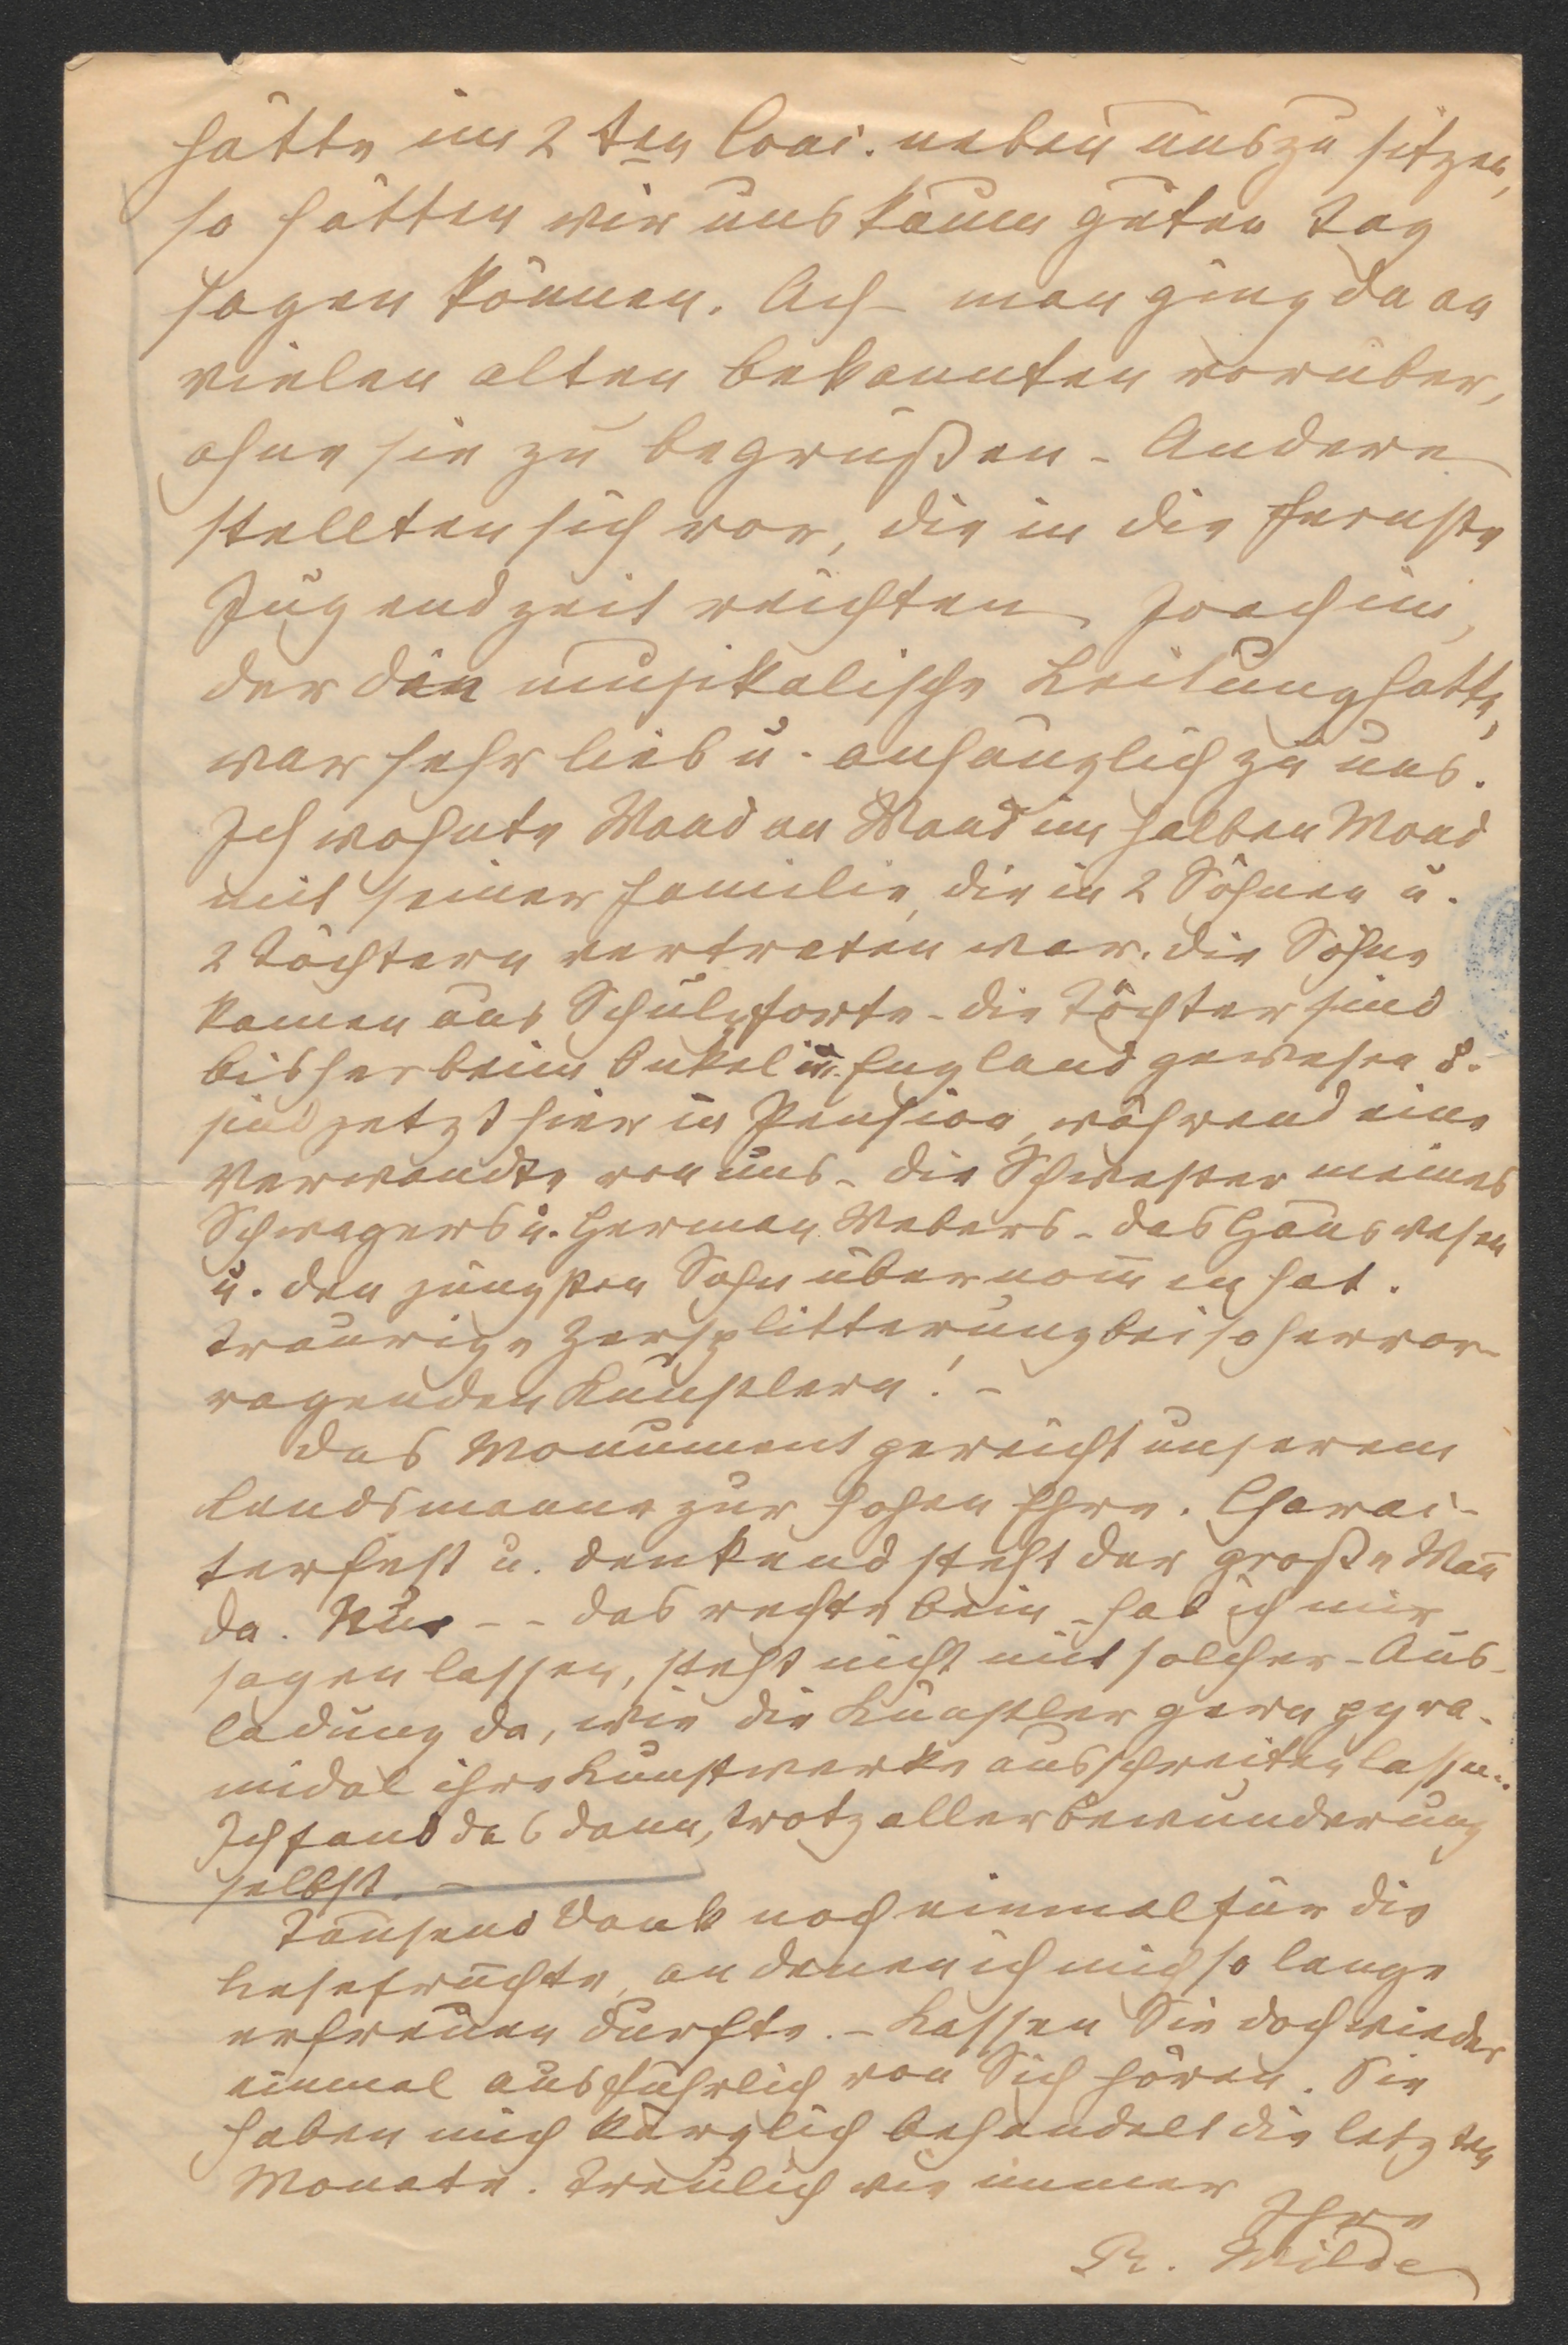 hätte im 2ten Conc. neben uns zu sitzen,
so hätten wir uns kaum guten Tag
sagen können. Ach – man ging da an
vielen alten Bekannten vorüber,
ohne sie zu begrüßen – Andere
stellten sich vor, die in die fernste
Jugendzeit reichten. Joachim,
der die musikalische Leitung hatte,
war sehr lieb u. anhänglich zu uns.
Ich wohnte Wand an Wand im halben Mond
mit seiner Familie, die in 2 Söhnen u.
2 Töchtern vertreten war. Die Söhne
kamen aus Schulpforte – die Töchter sind
bisher beim Onkel in England gewesen &.
sind jetzt hier in Pension, während eine
Verwandte von uns – die Schwester meines
Schwagers u. Herman Webers – das Hauswesen
u. den jüngsten Sohn übernom̄en hat.
Traurige Zersplitterung bei so hervor-
ragenden Künstlern! –
Das Monument gereicht unserem
Landsmanne zur hohen Ehre. Charac-
terfest u. denkend steht der große Man̄
da. Nur – – das rechte Bein – hab ich mir
sagen lassen, steht nicht mit solcher – Aus-
ladung da, wie die Künstler gern pyra-
midal ihre Kunstwerke ausschreiten lassen.
Ich fand das dann, trotz aller Bewunderung
selbst. –
Tausend Dank noch einmal für die
Lesefrüchte, an denen ich mich so lange
erfreuen durfte. – Lassen Sie doch wieder
einmal ausführlich von Sich hören. Sie
haben mich kärglich behandelt die letzten
Monate. Treulich wie immer
Ihre
R. Milde